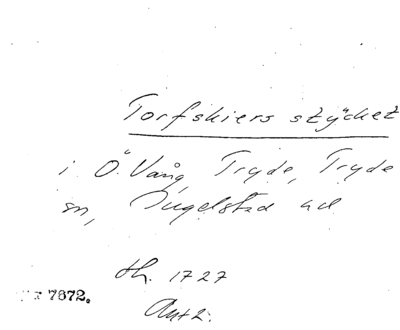 Torfskiers stycket
i Ö. Vång, Tryde, Tryde
sn, Ingelstad hd
th. 1727
Akt 2.
7672.